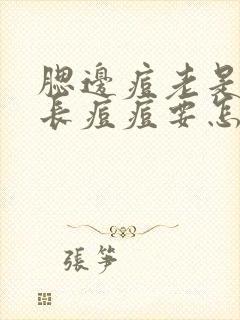 腮邊痘老是
長痘痘要怎
張笋